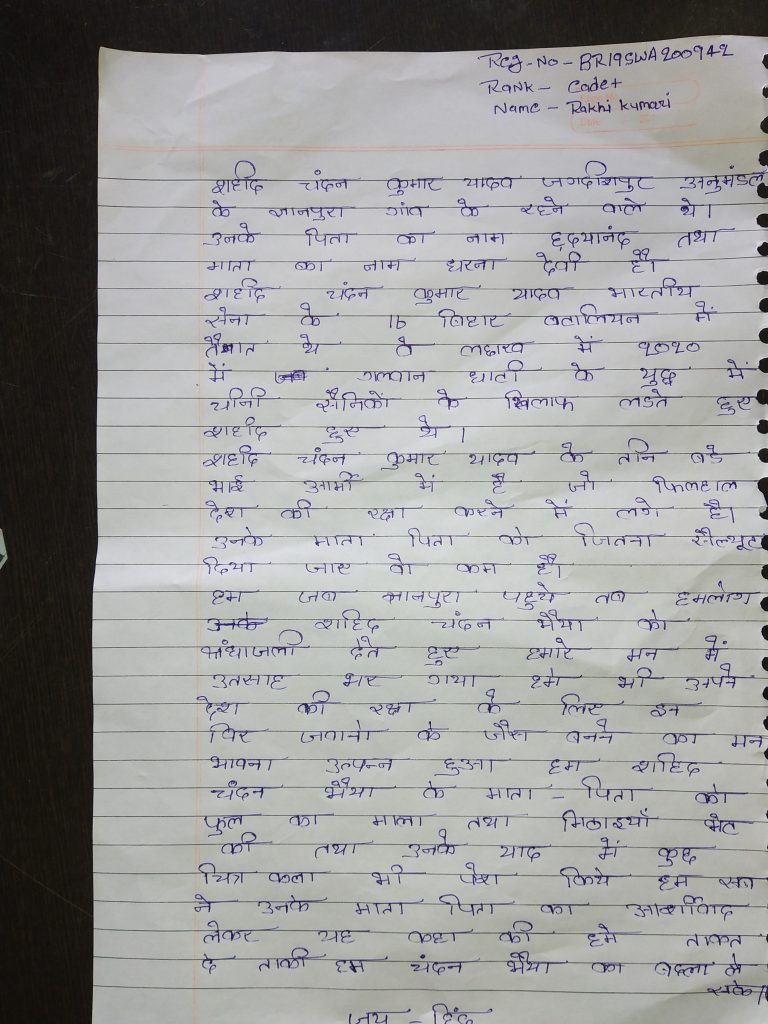 Reg-No - BR19SWA200942
Rank - Cadet
Name - Rakhi kumari
शहीद चंदन कुमार यादव जगदीशपुर अनुमंडल
के ज्ञानपुरा गांव के रहने वाले थे।
उनके पिता का नाम हृदयानंद तथा
माता का नाम धरना देवी है।
शहीद चंदन कुमार यादव भारतीय
सेना के 16 बिहार बतालियन में
तैनात थे वे लद्दाख में २०२०
में गलवान घाती के युद्ध में
चीनी सैनिकों के खिलाफ लडते हुए
शहीद हुए थे।
शहीद चंदन कुमार यादव के तीन बडे
भाई आर्मी में है जो फिलहाल
देश की रक्षा करने में लगे है।
उनके माता पिता को जितना सैल्यूट
दिया जाए वो कम है।
हम जब ज्ञानपुरा पहुचे तब हमलोग
उनके शहिद चंदन भैया को
श्रंधाजली देते हुए हमारे मन में
उतसाह भर गया हमे भी अपने
देश की रक्षा के लिए इन
विर जवानो के जैस बनने का मन
भावना उत्पन्न हुआ हम शहिद
चंदन भैया के माता - पिता को
फुल का माला तथा मिठाइयाँ भेट
की तथा उनके याद में कुछ
चित्र कला भी पेश किये हम सब
ने उनके माता पिता का आर्शीवाद
लेकर यह कहा की हमे ताकत
दे ताकी हम चंदन भैया का बदला ले
सके।
जय - हिंद